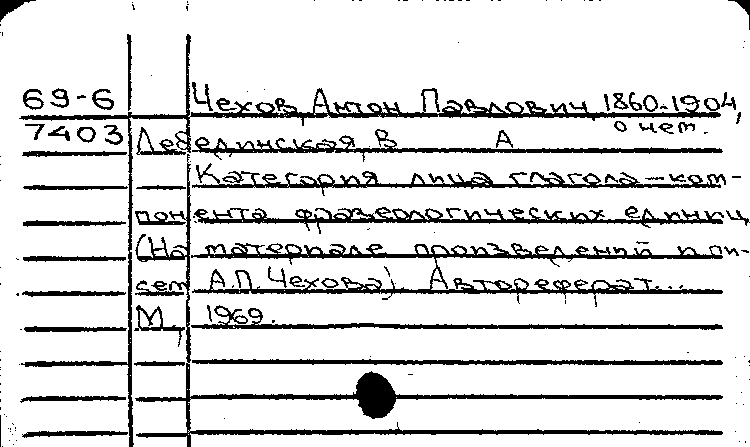 69-6 Чехов, Антон Павлович, 1860-1904,
о нем.
7403 Лебединская, В А
Категория лица глагола-ком-
понента фразеологических единиц
(На материале произведений и пи-
сем А.П. Чехова) Автореферат...
М., 1969.